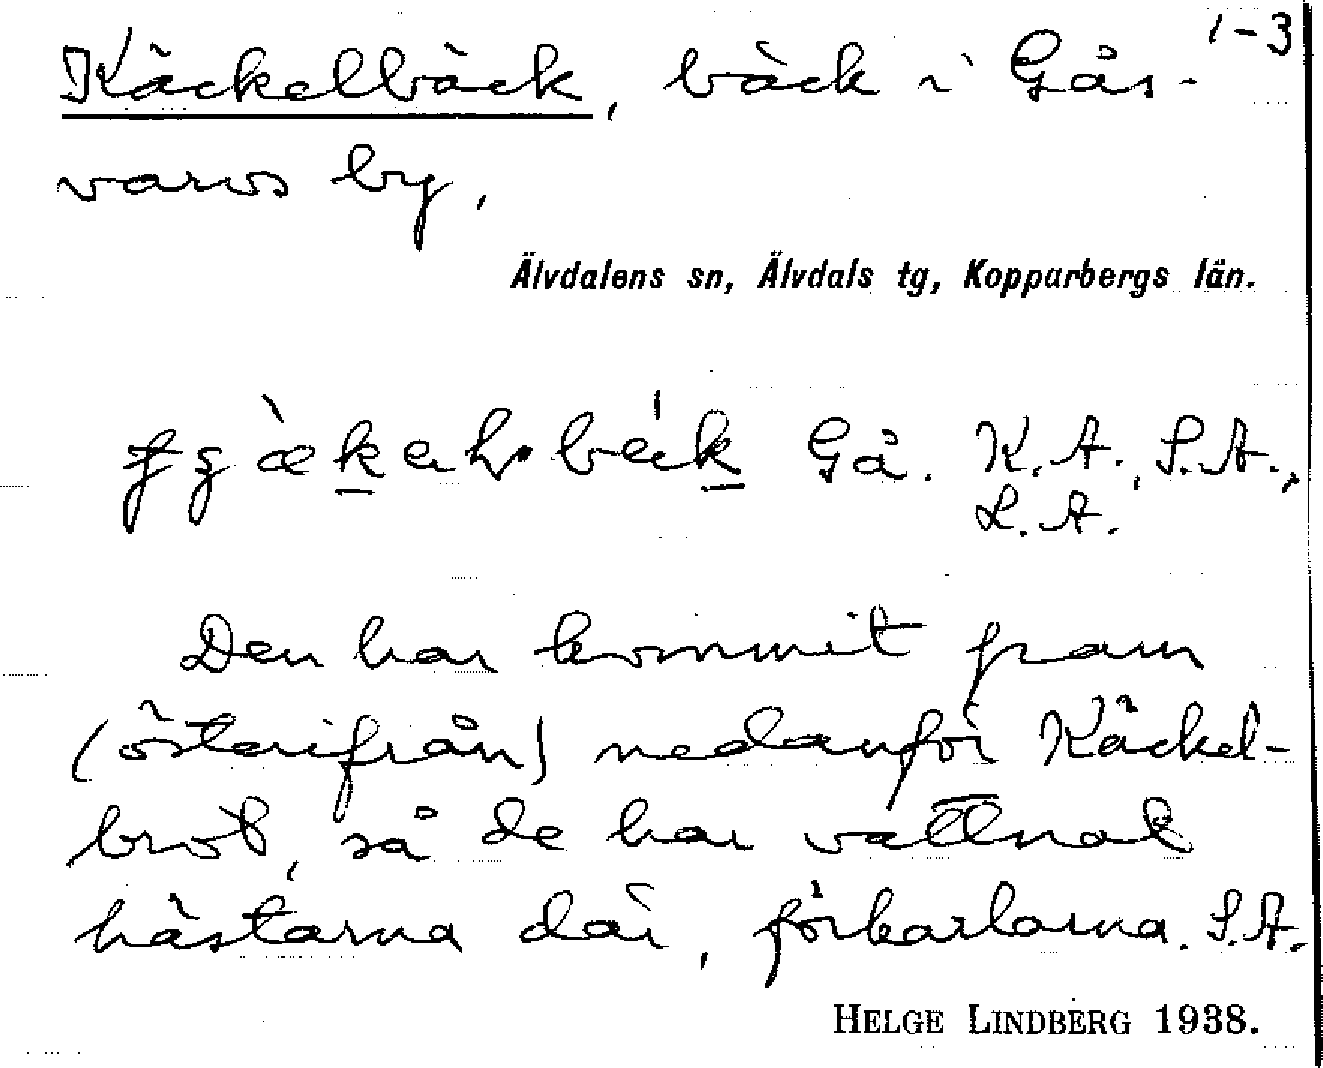 1-3
Käckelbäck, bäck i Gås-
varvs by.
Älvdalens sn, Älvdals tg, Kopparbergs län.
Gå. K.A., S.A.,
L.A.
Den har kommit fram
(österifrån) nedanför Käckel-
brot, så de har vattnat
hästarna där, förkarlarna. S.A.
HELGE LINDBERG 1938.